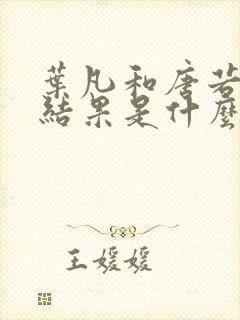 葉凡和唐若
結果是什麼
王媛媛